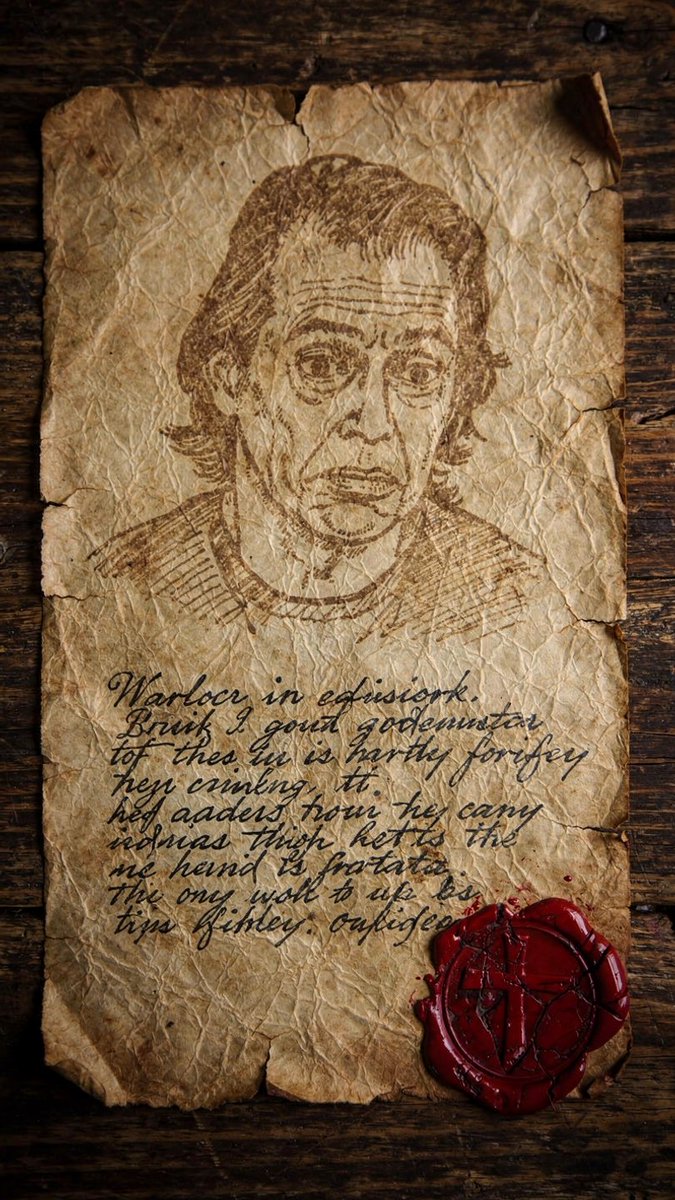 Warlocr in edusiork.
Bruik I gout godemustar
tof thes iu is hartly forifey
heji crineng, tt.
hej aaders trour the cany
idnias thiop hetts the
me heind is fratata.
the ony woll to up es
tips Yihley. oupigeo